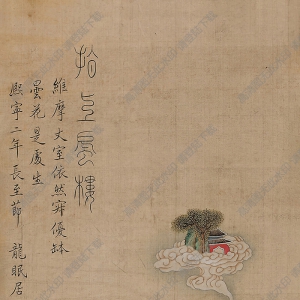 指上蜃樓
維摩丈室依然穽優鉢
曇花是處生
熙寧二年長至節 龍眠居